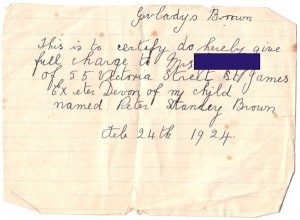 Gwladys Brown
This is to certify do hereby give
full charge to Mrs
of 55 Victoria Street St James
Exeter Devon of my child
named Peter Stanley Brown
Feb 24th 1924.